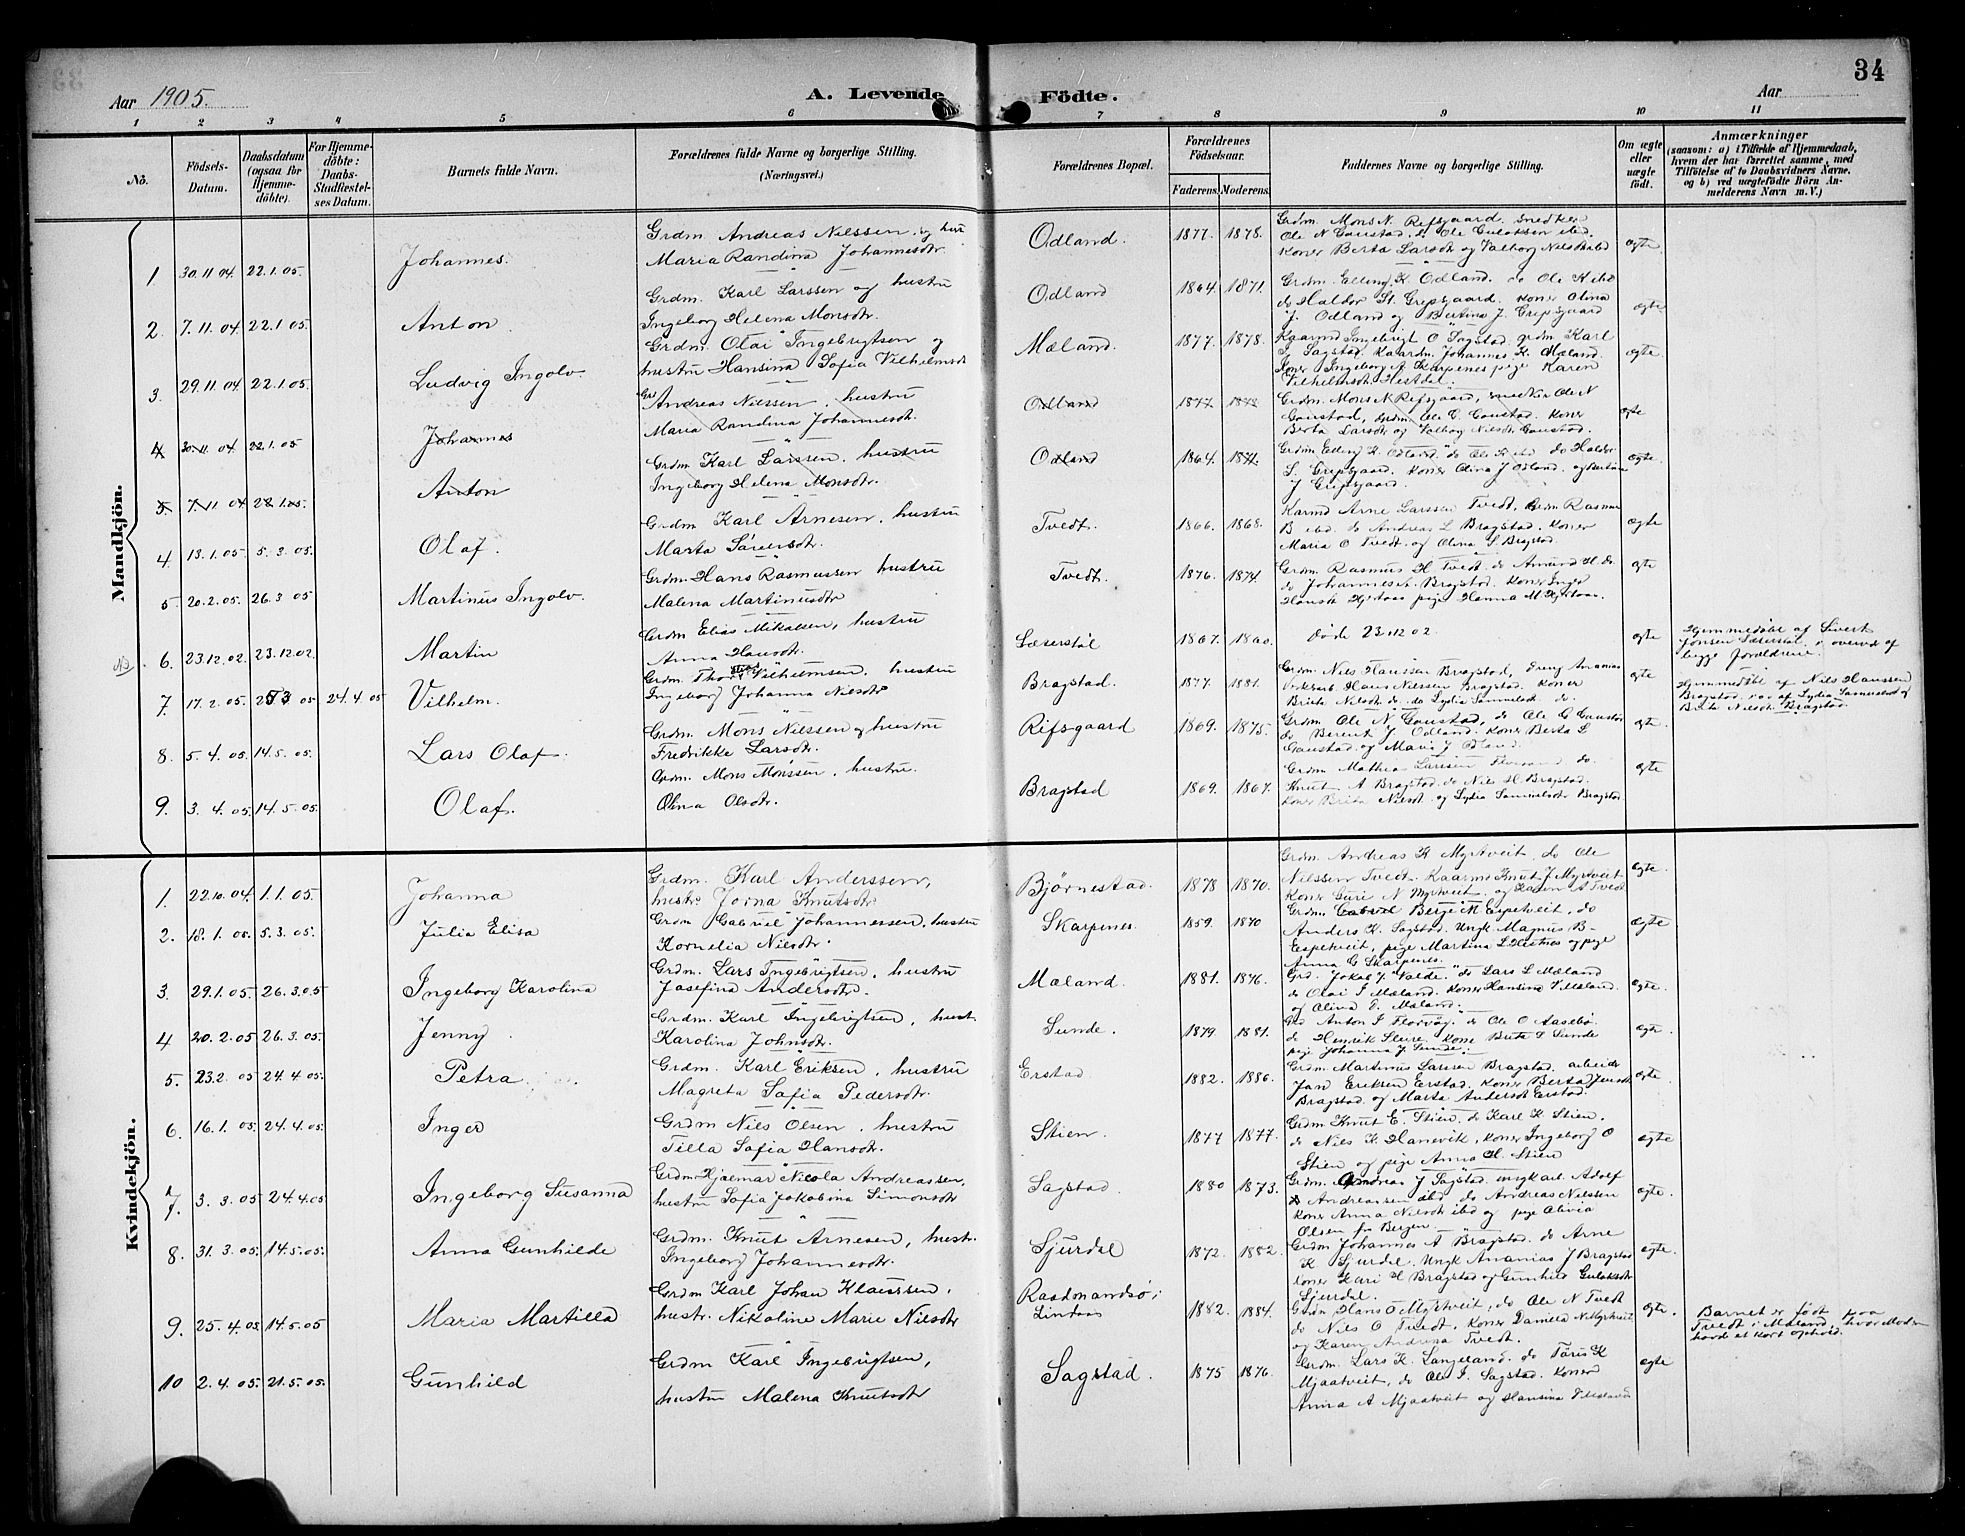 34
Aar 1905.
A. Levende Födte.
Aar
1 2 3 4 5 6 7 8 9 10 11
No.
Födsels-Datum.
Daabsdatum (ogsaa for Hjemmedöbte).
For Hjemmedöbte: Daabs-Stadfæstelses Datum.
Barnets fulde Navn.
Forældrenes fulde Navne og borgerlige Stilling. (Næringsvei.)
Forældrenes Bopæl.
Forældrenes Födselsaar.
Faderens. Moderens.
Faddernes Navne og borgerlige Stilling.
Om ægte eller uægte födt.
Anmærkninger
(saasom: a) i Tilfælde af Hjemmedaab, hvem der har forrettet samme, med Tilföielse af to Daabsvidners Navne, og b) ved uægtefödte Börn Anmelderens Navn m. V.)
Mandkjön.
1 30.11 04. 22.1.05. Johannes. Grdm. Andreas Nilssen, og hust Maria Randina Johannesdtr. Odland. 1877. 1878. Grdm. Mons N. Refsgaard. snedker Ole N Gaustad. Koner Berta Larsdtr og Valborg Nilsd ægte.
2. 7.11.04. 22.1 05. Anton. Grdm. Karl Larssen og hustru Ingeborg Helena Monsdtr. Odland 1864. 1871. Grdm. Elling K. Odland. do Ole K ibd do Haldor St. Grepsgaard. Koner Olina J. Odland og Bertina J. Grepsgaard ægte
3. 29.11 04. 22.1.05. Ludvig Ingolv. Grdm. Olai Ingebrigtsen og hustru Hansina Sofia Vilhelmsdtr Mæland. 1877. 1878. Kaarmd Ingebrigt O Sagstad, grdm Karl J. Sagstad. Kaardm. Johannes K. Mæland. Koner Ingeborg A Skarpenes pige Karen Vilhelmsdtr. Hestdal. ægte
4 30.11 04 22.1.05 Johannes Andreas Nilssen, hustru Maria Randina Johannesdtr. Odland 1877 1878 Grdm. Mons N Refsgaard, snedker Ole N Gaustad, Grdm. Ole C. Gaustad. Koner Berta Larsdtr og Valborg Nilsdtr Gaustad. ægte
5. 7.11 04 22.1.05. Anton Grdm Karl Larssen, hustru Ingeborg Helena Monsdtr. Odland 1864. 1871. Grdm Elling K. Odland. do Ole K ibd do Haldor S. Grepsgaard. Koner Olina J Odland. og Bertina J Grepsgaard. ægte.
4. 13.1.05. 5.3.05. Olaf. Grdm Karl Arnesen, hustru Marta Sörensdtr. Tvedt. 1866. 1868. Karmd Arne Larssen Tvedt, Grdm Rasmus B ibd. do Andreas L Bragstad. Koner Maria O Tvedt. og Olina S. Bragstad. ægte
5. 20.2.05. 26.3 05 Martinus Ingolv. Grdm. Hans Rasmussen hustru Malena Martinusdtr Tvedt. 1876. 1874. Grdm. Rasmus H Tvedt. do Amund H. do do Johannes A. Bragstad. Koner Inger Hansdtr Hjertaas pige Hanna M Hjertaas. ægte
6. 23.12.02. 23.12.02. Martin Grdm Elias Mikalsen, hustru Anna Hansdtr. Læserstöl 1867. 1860. Döde 23.12 02. ægte Hjemmedöbt af Sivert Jonsen Læserstöl i overvær af begge forældrene.
7. 17.2.05. 25 3 05 24.4.05 Vilhelm. Grdm. Thor Vilhelmsen, hustru Ingeborg Johanna Nilsdtr Bragstad. 1877. 1881. Grdm. Nils Hanssen Bragstad, dreng Ananias Hans Nilssen Bragstad. Koner Brite Nilsdtr do. do Lydia Samuelsdtr do ægte Hjemmedöbt af Nils Hanssen Bragstad. i ov af Lydia Samuelsdtr og Brite Nilsdtr. Bragstad.
8. 5.4.05. 14.5.05. Lars Olaf. Grdm. Mons Nilssen og hustru Fredrikke Larsdtr. Rifsgaard 1869. 1875. Grdm Ole N Gaustad, do Ole G Gaustad do Berent J Odland. Koner Berta L Gaustad. og Maria J Odland. ægte
9. 3.4.05. 14.5.05. Olaf. Grdm. Mons Monssen, hustru. Olina Olsdtr. Bragstad 1869. 1867. Grdm Mathias Larssen do. Knut A Bragstad. do Nils H Bragstad. Koner Brita Nilsdt. og Lydia Samuelsdtr Bragstad ægte
Kvindekjön.
1. 22.10.04. 1.1.05. Johanna Grdm. Karl Anderssen, hustr. Jorna Knutsdtr. Björnestad. 1878 1870. Grdm. Andreas K Myrtveit, do Ole Nilssen Tvedt. Kaarmd Knut J. Myrtveit Koner Guri N Myrtveit. og Karen A Tvedt ægte.
2. 18.1.05. 5.3.05. Julia Elisa Grdm Gabriel Johannessen, hustru Kornelia Nilsdtr. Skarpenes. 1859. 1870 Grdm. Gabriel Berge M Espetveit, do Anders K. Sagstad. Ungk. Magnus B. Espetveit, pige Martina L og pige Anna G Skarpenes. ægte
3. 29.1.05. 26.3.05 Ingeborg Karolina Grdm. Lars Ingebrigtsen, hustru Josefina Andersdtr. Mæland. 1881. 1876. Grd. Jakob J. Valde. do Lars L Mæland do Olai I Mæland. Koner Hansina V Mæland. og Olina I. Mæland. ægte.
4 20.2.05 26.3.05. Jenny. Grdm. Karl Ingebrigtsen, hust. Karolina Johnsdtr. Sunde. 1879. 1881. Grd Anton I Florvåg. do Ole O Aasebö do Henrik Steire. Kone Brita I Sunde pige Johanna J. Sunde. ægte.
5. 23.2.05 24.4.05. Petra Grdm. Karl Eriksen, hustru Magreta Sofia Pedersdtr. Erstad. 1882. 1886. Grdm. Martinus Larssen Bragstad. arbeider Jan Eriksen Erstad, Koner Berta Jensdtr Bragstad. og Marta Andersdt Erstad. ægte
6. 16.1.05. 24.4.05. Inger Grdm Nils Olsen, hustru Tilla Sofia Hansdtr. Stien. 1877 1877. Grdm Knut E. Stien, do Karl K Stien. do Nils K Hanevik, Koner Ingeborg O Stien og pige Anna H. Stien ægte
7. 3.3.05 24.4.05 Ingeborg Susanna Grdm Hjalmar Nicola Andreassen, hustru Sofia Jakobina Simonsdtr Sagstad. 1880 1873. Grdm. Andreas J Sagstad. ungkarl Adolf Andreassen ibd do Andreas Nilssen Koner Anna Nilsdtr ibd og pige Olivia Olsen fra Bergen. ægte.
8. 31.3.05. 14.5.05. Anna Gunhilde Grdm. Knut Arnesen, hustr. Ingeborg Johannesdtr. Sjurdal 1872. 1882. Grdm Johannes A Bragstad. do Arne K Sjurdal. Ungk Ananias J Bragstad Koner Kari H Bragstad og Gunhild Gulaksdtr Sjurdal. ægte.
9 25.4.05. 14.5.05 Maria Martilla Grdm Karl Johan Klaussen, hustr. Nikoline Marie Nilsdtr Raadmandsö i Lindaas 1882. 1884. Grdm Hans O Myrtveit, do Ole N Tvedt do Nils O Tvedt, Koner Damela N Myrtveit og Karen Andrina Tvedt. ægte. Barnet er födt paa Tvedt i Mæland, hvor Moderen havde et kort ophold.
10 2.4.05. 21.5.05. Gunhild Grdm Karl Ingebrigtsen, hustru Malena Knutsdtr Sagstad. 1875 1876. Grdm. Lars K. Langeland. do Toris K Mjaatveit, do Ole I. Sagstad. Koner Anna A Mjaatveit og Hansina V Mæland ægte